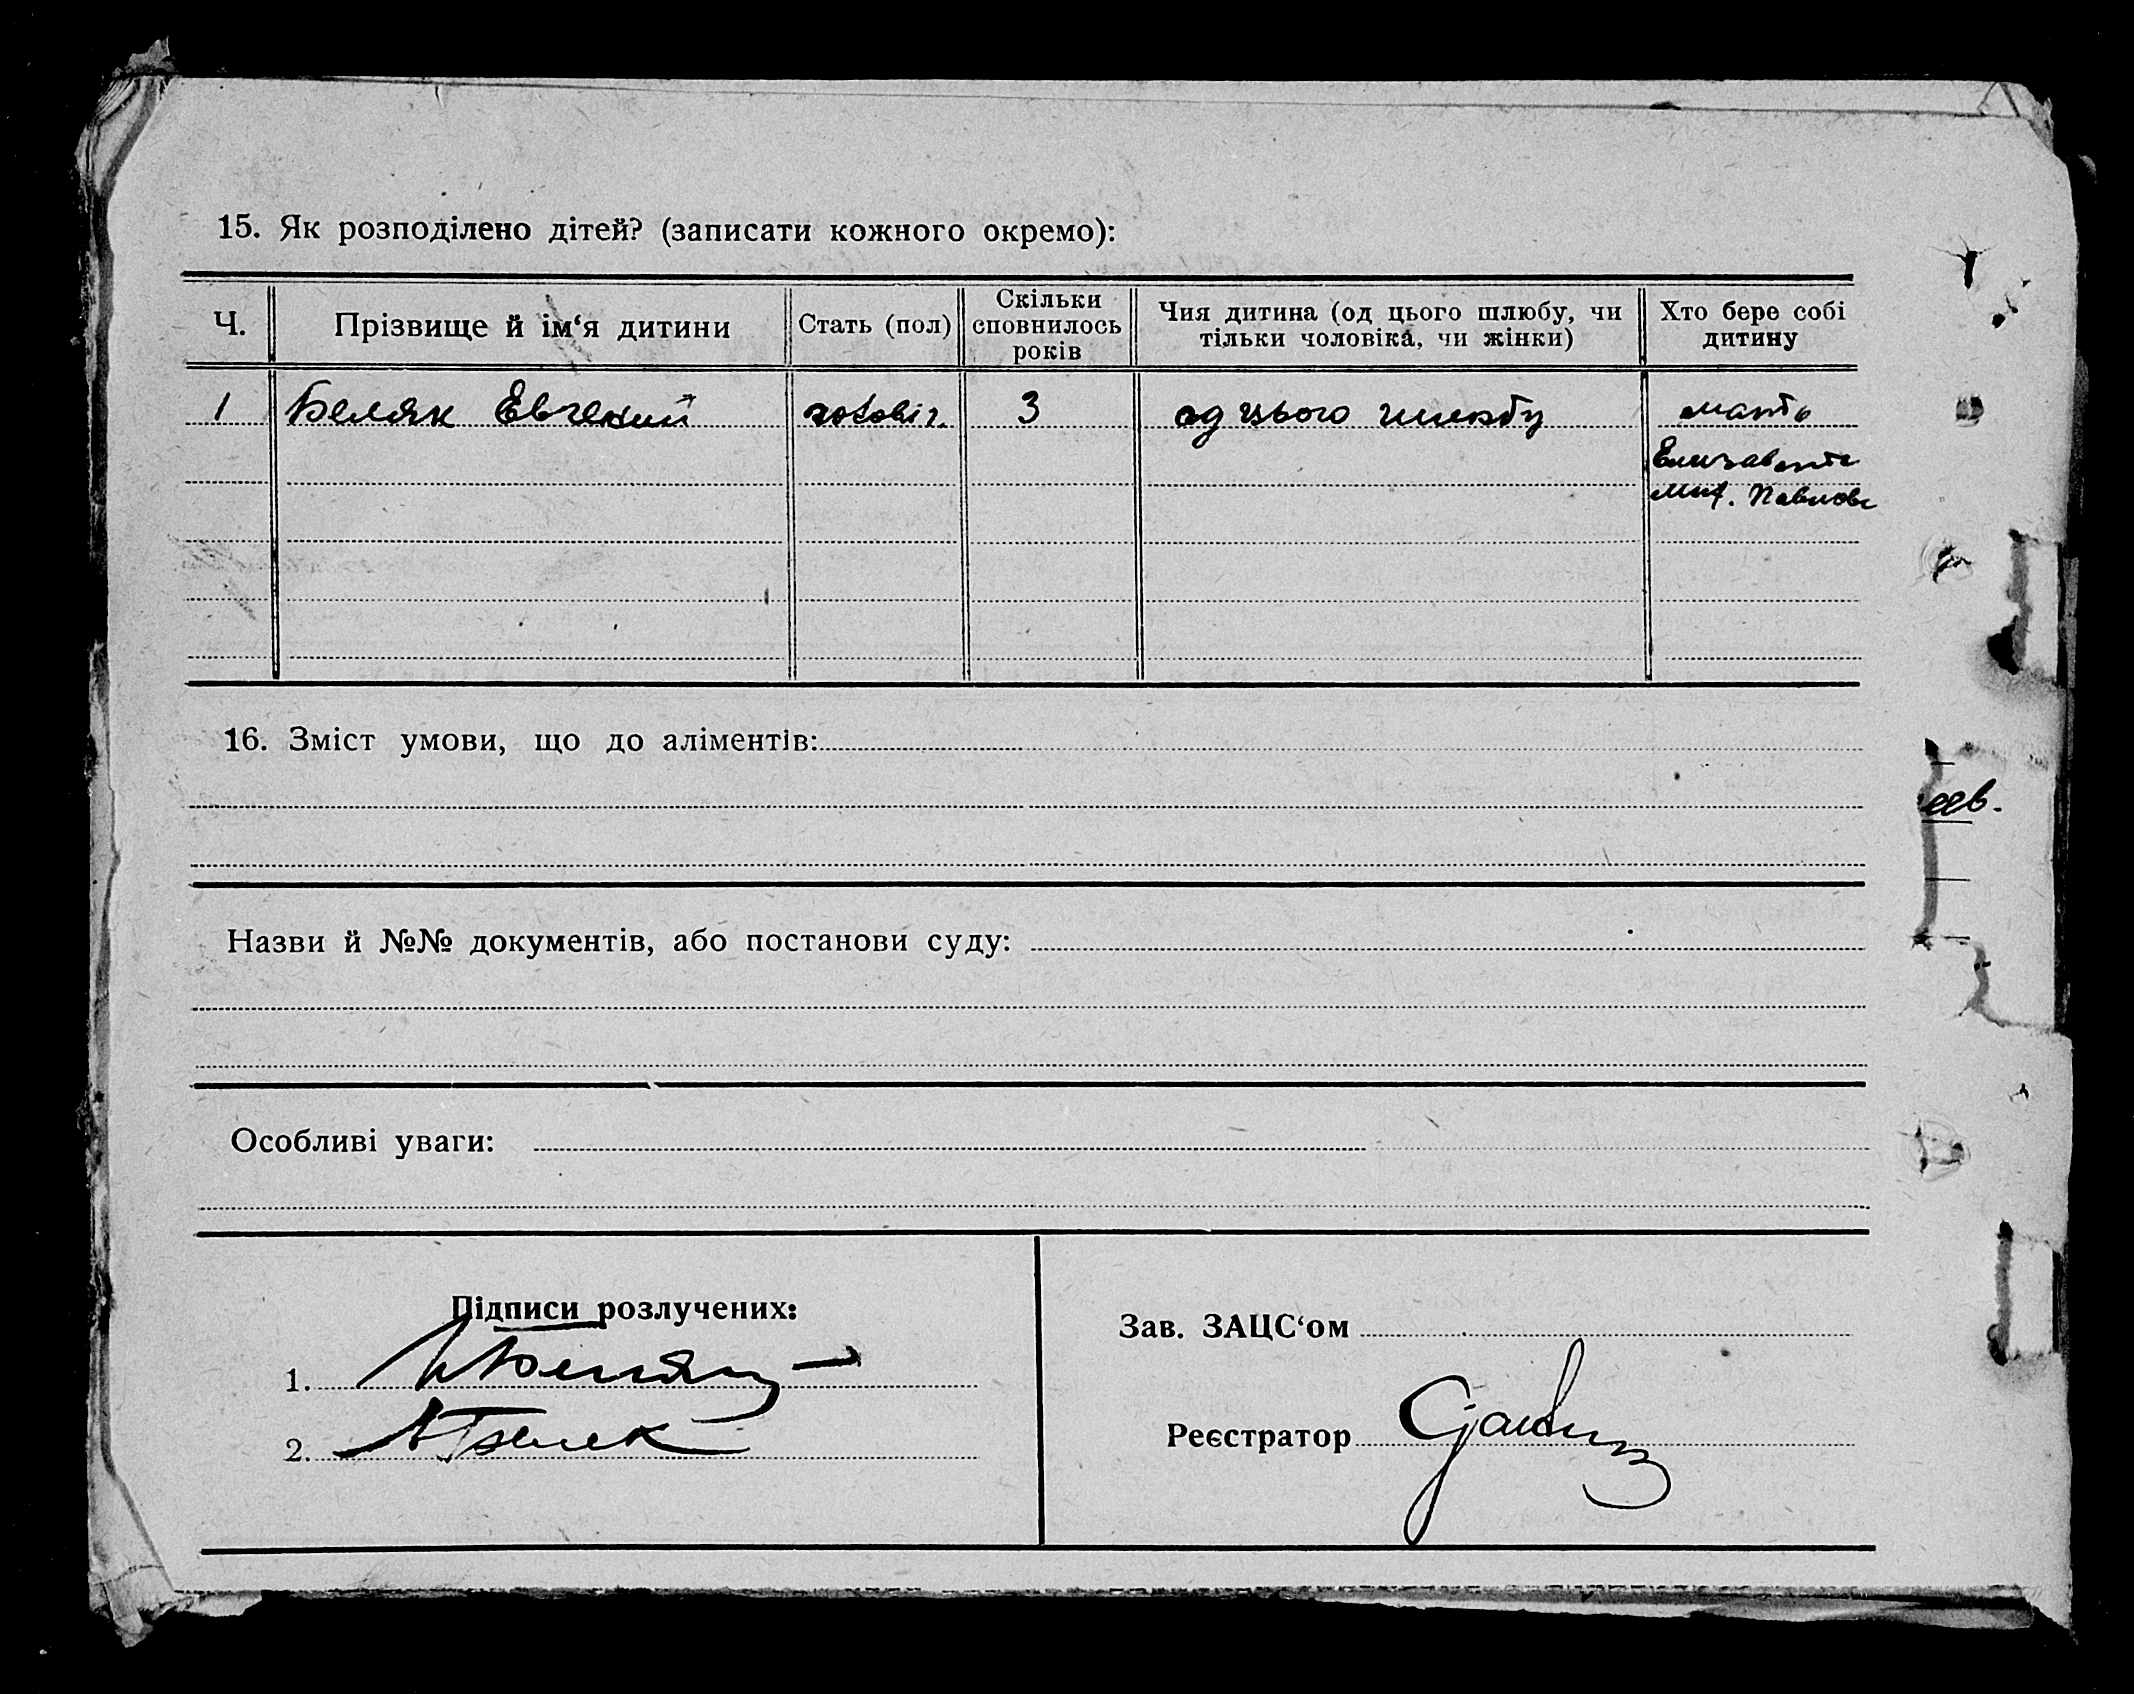 15. Як розподілено дітей? (записати кожного окремо):
Ч. Прізвище й ім‘я дитини Стать (пол) Скільки сповнилось років Чия дитина (од цього шлюбу, чи тільки чоловіка, чи жінки) Хто бере собі дитину
1 Беляк Евгений чоловіч. 3 од цього шлюбу мать
Елизавета
Мит. Павлова
16. Зміст умови, що до аліментів:
Назви й №№ документів, або постанови суду:
Особливі уваги:
Підписи розлучених:
1.
2.
Зав. ЗАЦС‘ом
Реєстратор